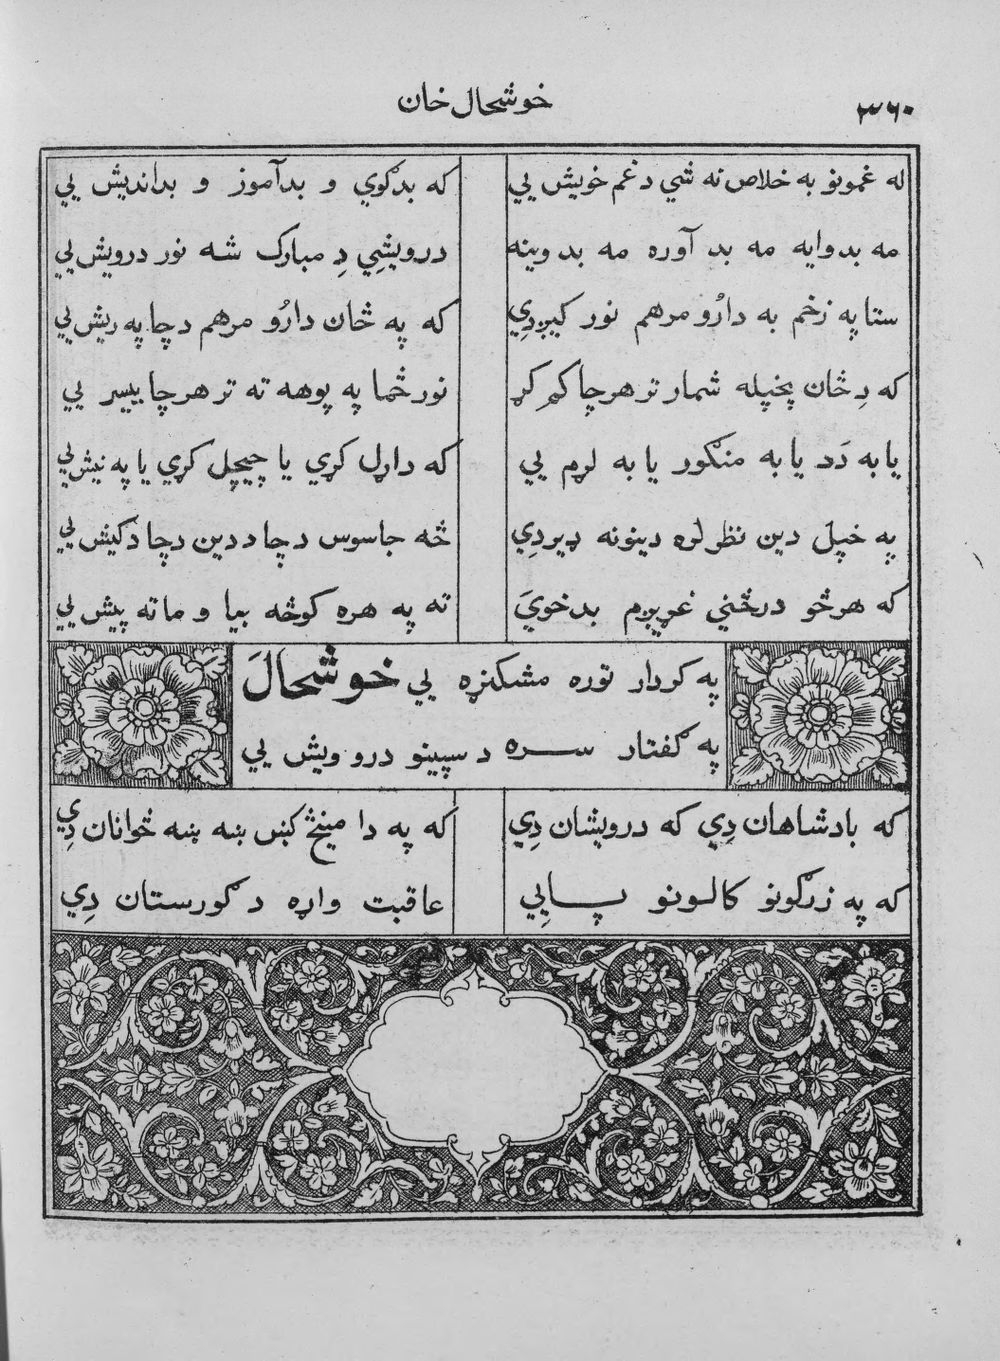 خوشحال خان
۳۶۰
له غمونو به خلاص نه شې د غم خویش یې    که بدګوی و بدآموز و بداندیش یې
مه بد وایه مه بد آوره مه بد وینه    درویشي دِ مبارک شه نور درویش یې
ستا په زخم به دارُو مرهم نور کیږدِي    که په ځان دارُو مرهم د چا په ریش یې
که دِ ځان پخپله شمار تر هر چا کم کړ    نور څما په پوهه ته تر هر چا بیسر یې
یا به دَد یا به منګور یا به لړم یې    که داړل کړې یا چیچل کړې یا په نیش یې
په خپل دین نظر لره دینونه ډیر دِي    څه جاسوس د چا د دین د چا د کیش یې
که هر څو درڅنې غړیږم بدخویَ    ته په هره کوڅه بیا و ما ته پیش یې
په کردار توره مشکنړه یې خوشحالَ
په ګفتار سره د سپینو درو ویش یې
که بادشاهان دِي که درویشان دِي    که په دا مینځ کښ ښه ښه ځوانان دِي
که په زرګونو کالونو پایي    عاقبت واړه د ګورستان دِي